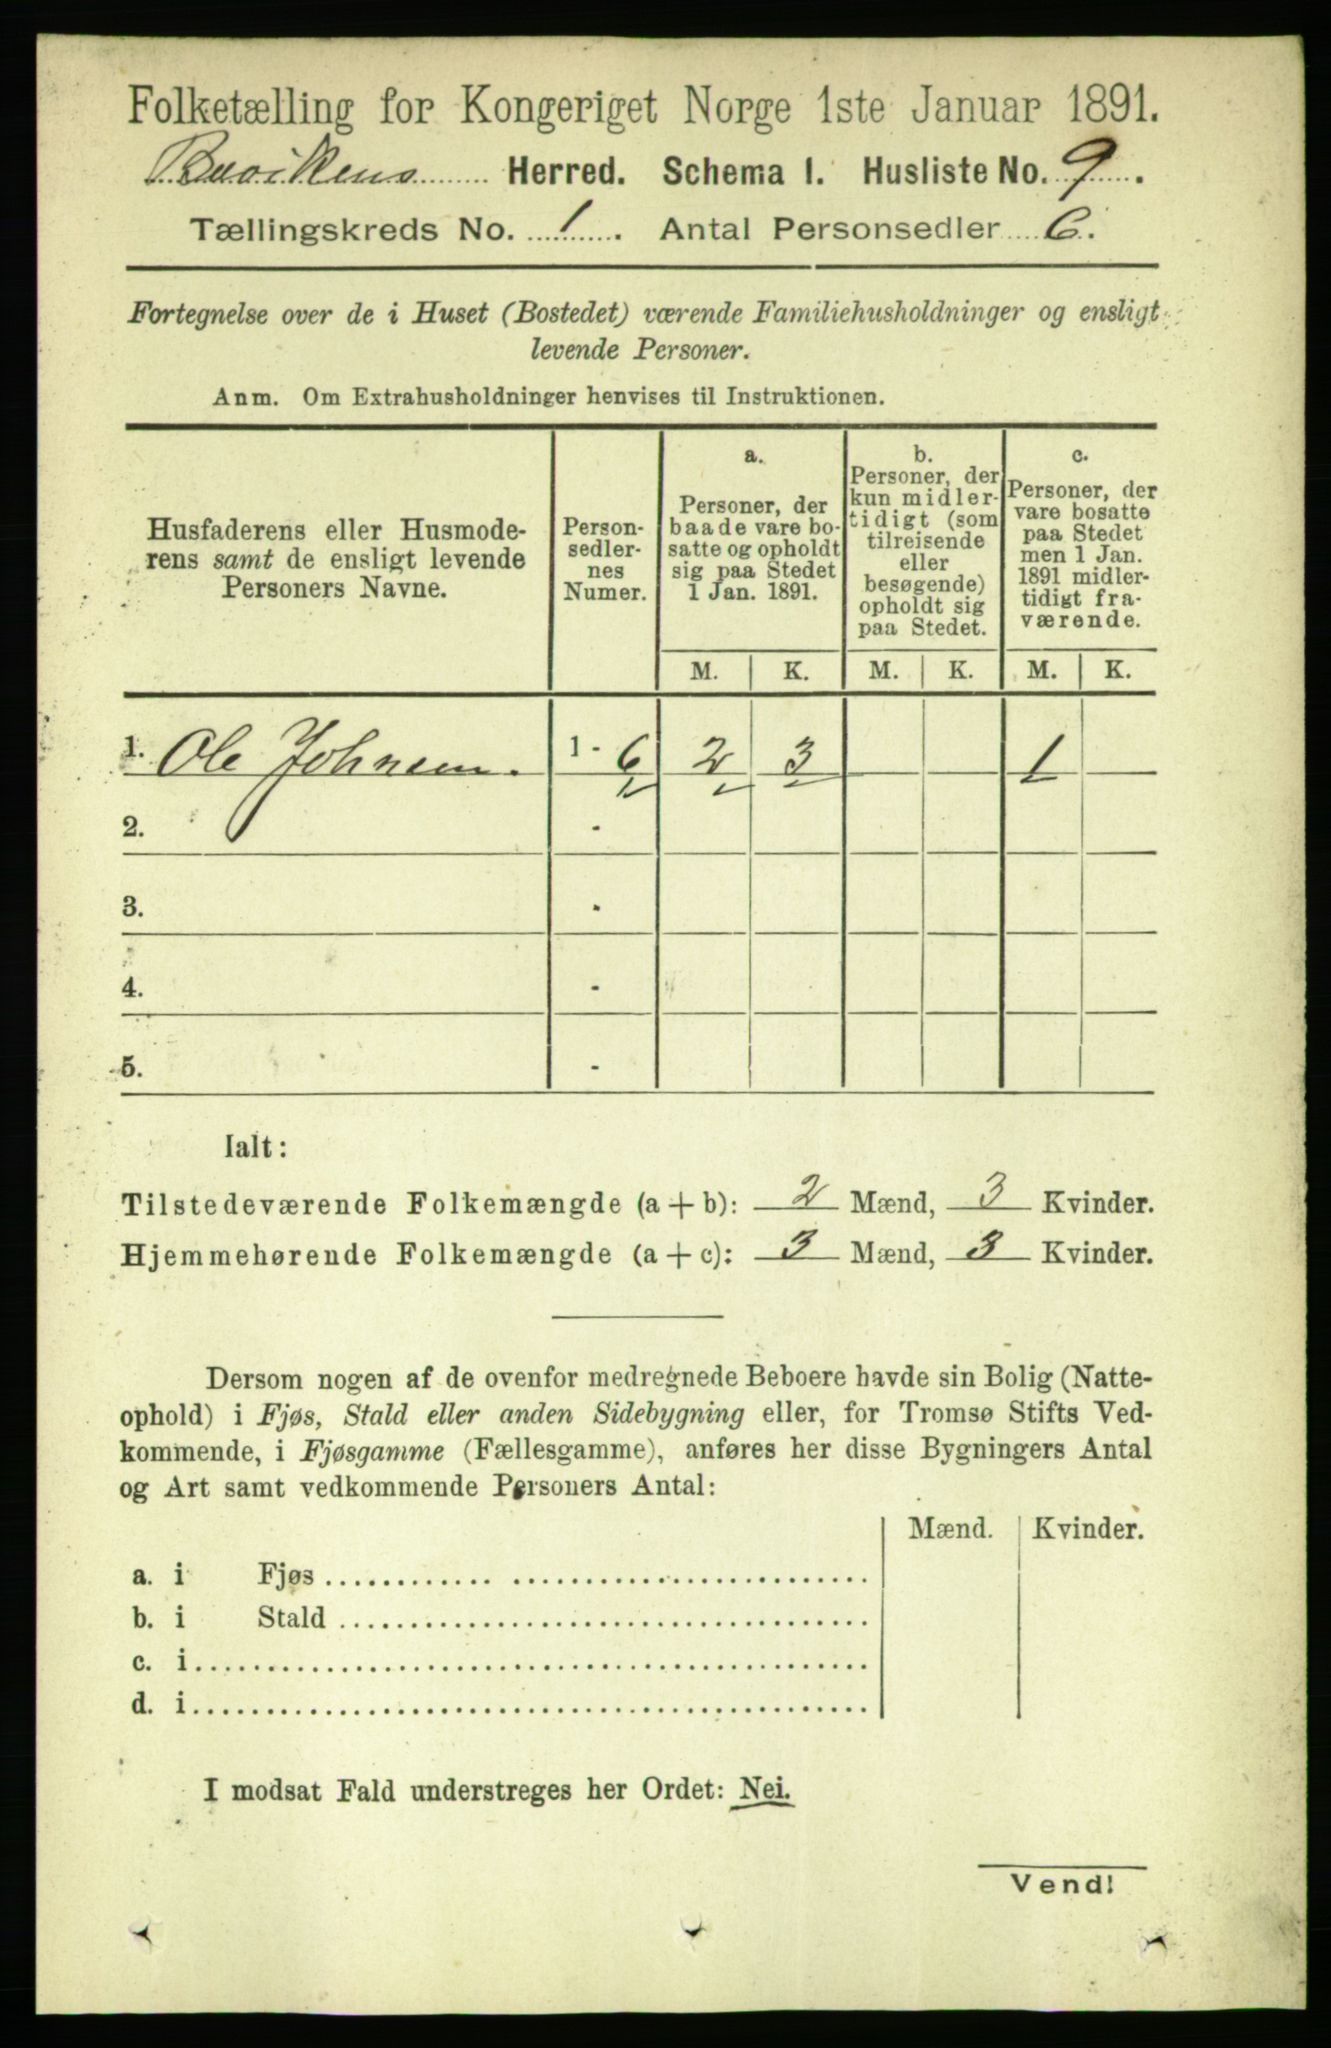 Folketælling for Kongeriget Norge 1ste Januar 1891.
Buvikens Herred. Schema 1. Husliste No. 9.
Tællingskreds No. 1. Antal Personsedler 6.
Fortegnelse over de i Huset (Bostedet) værende Familiehusholdninger og ensligt
levende Personer.
Anm. Om Extrahusholdninger henvises til Instruktionen.
Husfaderens eller Husmode-
rens samt de ensligt levende
Personers Navne.
Person-
sedler-
nes
Numer.
a.
Personer, der
baade vare bo-
satte og opholdt
sig paa Stedet
1 Jan. 1891.
b.
Personer, der
kun midler-
tidigt (som
tilreisende
eller
besøgende)
opholdt sig
paa Stedet.
c.
Personer, der
vare bosatte
paa Stedet
men 1 Jan.
1891 midler-
tidigt fra-
værende.
M. K. M. K. M. K.
1. Ole Johnsen. 1 - 6 2 3 1
2. -
3. -
4. -
5. -
Ialt:
Tilstedeværende Folkemængde (a + b): 2 Mænd, 3 Kvinder.
Hjemmehørende Folkemængde (a + c): 3 Mænd, 3 Kvinder.
Dersom nogen af de ovenfor medregnede Beboere havde sin Bolig (Natte-
ophold) i Fjøs, Stald eller anden Sidebygning eller, for Tromsø Stifts Ved-
kommende, i Fjøsgamme (Fællesgamme), anføres her disse Bygningers Antal
og Art samt vedkommende Personers Antal:
Mænd. Kvinder.
a. i Fjøs
b. i Stald
c. i
d. i
I modsat Fald understreges her Ordet: Nei.
Vend!